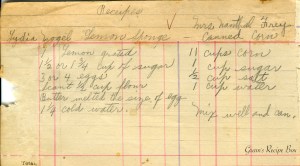 Receipts
Lydia Vogel Lemon Sponge
1 Lemon grated
1 1/2 or 1 3/4 cup of sugar
3 or 4 eggs
scant 1/2 cup flour
Butter melted the size of egg
1 1/2 cold water
Mrs. Frey
Canned Corn
11 cups corn
1 cup sugar
1/2 cup salt
1 cup water
Mix well and can.
Gram's Recipe Box